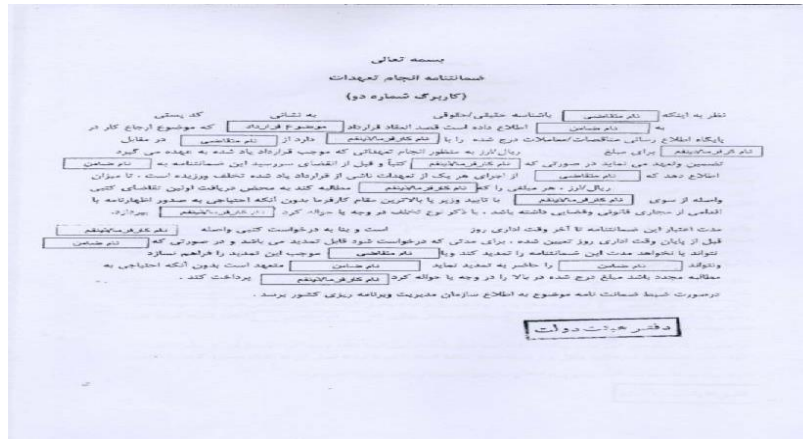 بسمه تعالی
ضمانتنامه انجام تعهدات
(کاربرگ شماره دو)
نظر به اینکه نام متقاضی باشناسه حقیقی/حقوقی به نشانی کد پستی
به نام ضامن اطلاع داده است قصد انعقاد قرارداد موضوع قرارداد که موضوع ارجاع کار در
پایگاه اطلاع رسانی مناقصات/معاملات درج شده را با نام کارفرما/ذینفع دارد از نام متقاضی در مقابل
نام کارفرما/ذینفع برای مبلغ ریال/ارز به منظور انجام تعهداتی که موجب قرارداد یاد شده به عهده می گیرد
تضمین وتعهد می نماید در صورتی که نام کارفرما/ذینفع کتباً و قبل از انقضای سررسید این ضمانتنامه به نام ضامن
اطلاع دهد که نام متقاضی از اجرای هر یک از تعهدات ناشی از قرارداد یاد شده تخلف ورزیده است ، تا میزان
ریال/ارز ، هر مبلغی را که نام کارفرما/ذینفع مطالبه کند به محض دریافت اولین تقاضای کتبی
واصله از سوی نام کارفرما/ذینفع با تایید وزیر یا بالاترین مقام کارفرما بدون آنکه احتیاجی به صدور اظهارنامه یا
اقدامی از مجاری قانونی وقضایی داشته باشد ، با ذکر نوع تخلف در وجه یا حواله کرد نام کارفرما/ذینفع بپردازد.
مدت اعتبار این ضمانتنامه تا آخر وقت اداری روز است و بنا به درخواست کتبی واصله نام کارفرما/ذینفع
قبل از پایان وقت اداری روز تعیین شده ، برای مدتی که درخواست شود قابل تمدید می باشد و در صورتی که نام ضامن
نتواند یا نخواهد مدت این ضمانتنامه را تمدید کند ویا نام متقاضی موجب این تمدید را فراهم نسازد
ونتواند نام ضامن را حاضر به تمدید نماید نام ضامن متعهد است بدون آنکه احتیاجی به
مطالبه مجدد باشد مبلغ درج شده در بالا را در وجه یا حواله کرد نام کارفرما/ذینفع پرداخت کند .
درصورت ضبط ضمانت نامه موضوع به اطلاع سازمان مدیریت وبرنامه ریزی کشور برسد .
دفتر هیئت دولت